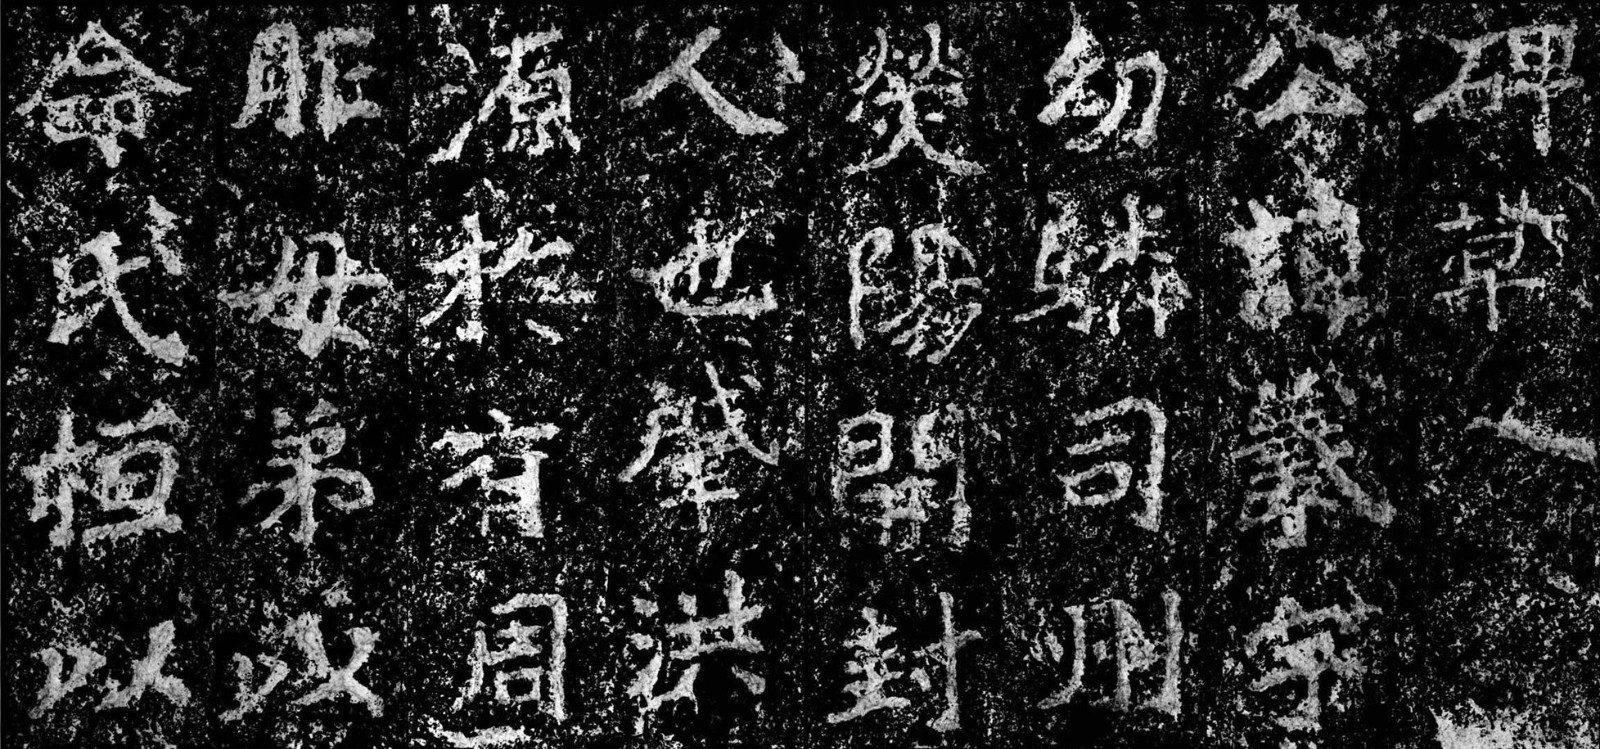 碑草一
公諱羲字
幼驎司州
熒陽開封
人也肇洪
源於有周
胙母弟以
命氏桓以